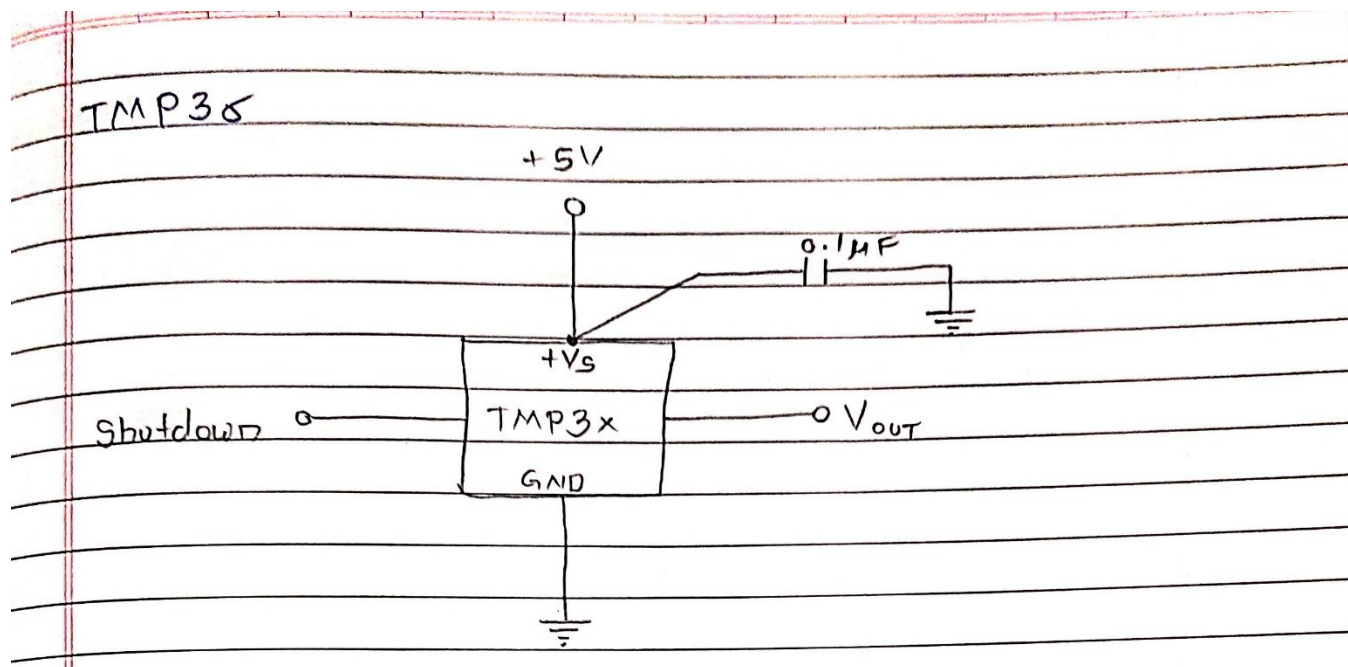 TMP36
+5V
0.1μF
+Vs
Shutdown
TMP3x
VOUT
GND